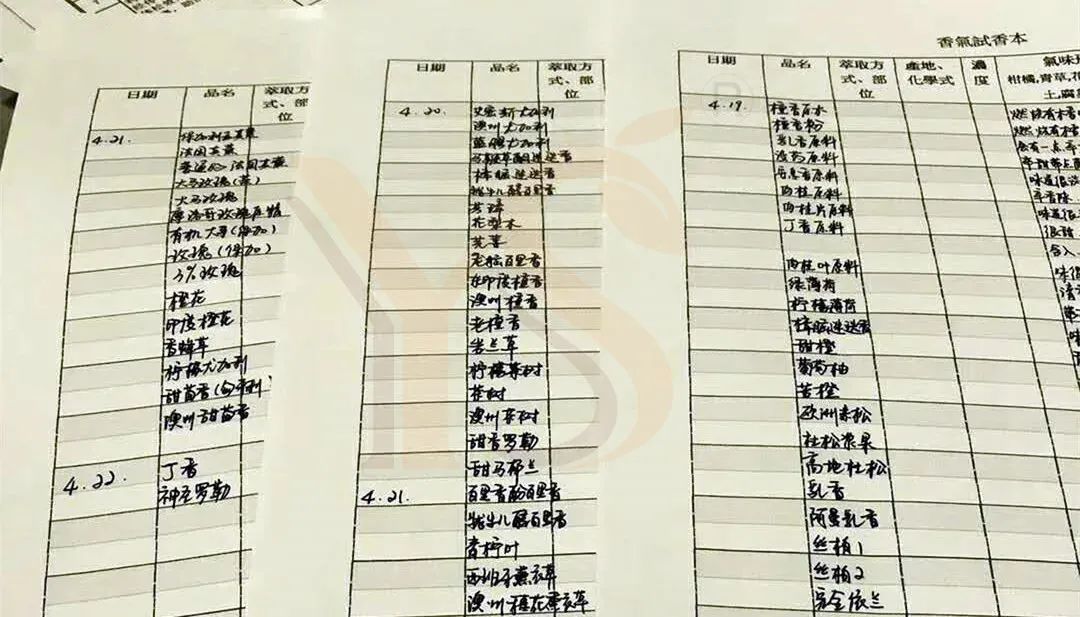 日期 品名 萃取方式、部位
4.21. 保加利亚玫瑰
法国玫瑰
大马玫瑰
摩洛哥玫瑰原精
有机大马(保加)
玫瑰(保加)
3%玫瑰
橙花
印度橙花
香蜂草
柠檬尤加利
甜茴香(匈牙利)
澳洲甜茴香
4.22. 丁香
神圣罗勒
日期 品名 萃取方式、部位
4.20. 史密斯尤加利
澳州尤加利
蓝胶尤加利
马鞭草酮迷迭香
樟脑迷迭香
牻牛儿醇百里香
芳樟
花梨木
芫荽
老松百里香
东印度檀香
澳州檀香
老檀香
岩兰草
柠檬茶树
茶树
澳州茶树
甜香罗勒
甜马郁兰
4.21. 百里香酚百里香
牻牛儿醇百里香
青柠叶
西班牙薰衣草
澳州橙花薰衣草
香氣試香本
日期 品名 萃取方式、部位 產地、化學式 濃度
柑橘,青草,
4.19. 檀香原木
檀香粉
乳香原料
没药原料
安息香原料
肉桂原料
肉桂片原料
丁香原料
肉桂叶原料
绿薄荷
柠檬薄荷
樟脑迷迭香
甜橙
葡萄柚
苦橙
欧洲赤松
杜松浆果
高地杜松
乳香
阿曼乳香
丝柏1
丝柏2
完全依兰
YS